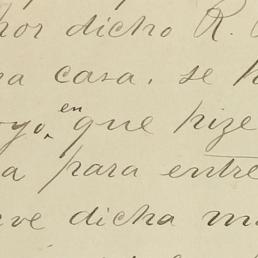 por dicho R.
ra casa. se h
oyo, en que hize
a para entre
eve dicha m